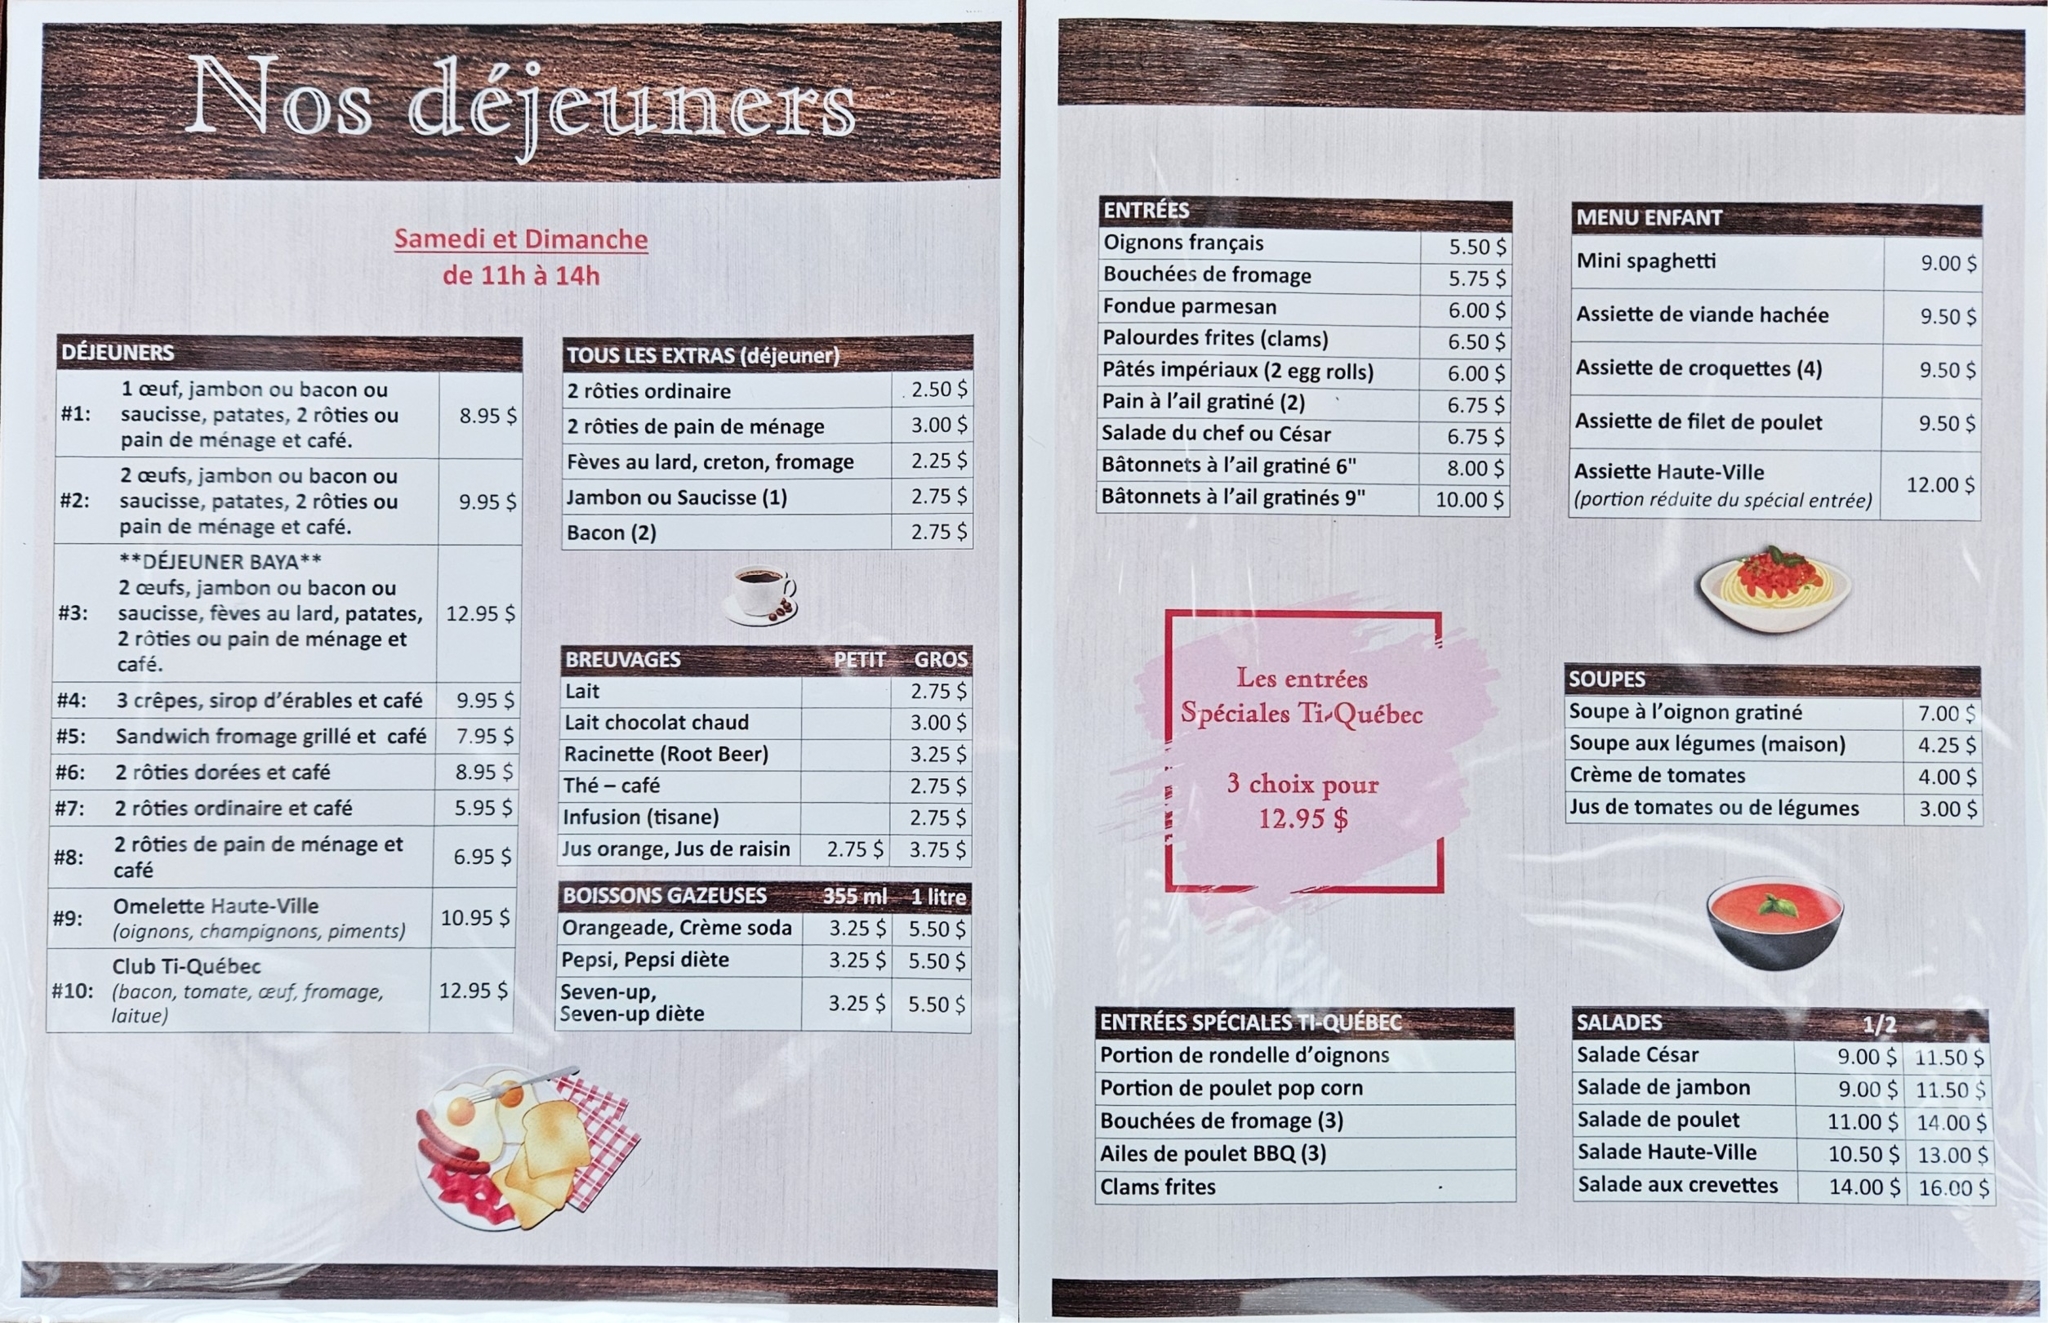 Nos déjeuners
Samedi et Dimanche
de 11h à 14h
DÉJEUNERS
#1: 1 œuf, jambon ou bacon ou
saucisse, patates, 2 rôties ou
pain de ménage et café. 8.95 $
#2: 2 œufs, jambon ou bacon ou
saucisse, patates, 2 rôties ou
pain de ménage et café. 9.95 $
**DÉJEUNER BAYA**
#3: 2 œufs, jambon ou bacon ou
saucisse, fèves au lard, patates,
2 rôties ou pain de ménage et
café. 12.95 $
#4: 3 crêpes, sirop d'érables et café 9.95 $
#5: Sandwich fromage grillé et café 7.95 $
#6: 2 rôties dorées et café 8.95 $
#7: 2 rôties ordinaire et café 5.95 $
#8: 2 rôties de pain de ménage et
café 6.95 $
#9: Omelette Haute-Ville
(oignons, champignons, piments) 10.95 $
#10: Club Ti-Québec
(bacon, tomate, œuf, fromage,
laitue) 12.95 $
TOUS LES EXTRAS (déjeuner)
2 rôties ordinaire 2.50 $
2 rôties de pain de ménage 3.00 $
Fèves au lard, creton, fromage 2.25 $
Jambon ou Saucisse (1) 2.75 $
Bacon (2) 2.75 $
BREUVAGES PETIT GROS
Lait 2.75 $
Lait chocolat chaud 3.00 $
Racinette (Root Beer) 3.25 $
Thé – café 2.75 $
Infusion (tisane) 2.75 $
Jus orange, Jus de raisin 2.75 $ 3.75 $
BOISSONS GAZEUSES 355 ml 1 litre
Orangeade, Crème soda 3.25 $ 5.50 $
Pepsi, Pepsi diète 3.25 $ 5.50 $
Seven-up,
Seven-up diète 3.25 $ 5.50 $
ENTRÉES
Oignons français 5.50 $
Bouchées de fromage 5.75 $
Fondue parmesan 6.00 $
Palourdes frites (clams) 6.50 $
Pâtés impériaux (2 egg rolls) 6.00 $
Pain à l'ail gratiné (2) 6.75 $
Salade du chef ou César 6.75 $
Bâtonnets à l'ail gratiné 6" 8.00 $
Bâtonnets à l'ail gratinés 9" 10.00 $
Les entrées
Spéciales Ti-Québec
3 choix pour
12.95 $
ENTRÉES SPÉCIALES TI-QUÉBEC
Portion de rondelle d'oignons
Portion de poulet pop corn
Bouchées de fromage (3)
Ailes de poulet BBQ (3)
Clams frites
MENU ENFANT
Mini spaghetti 9.00 $
Assiette de viande hachée 9.50 $
Assiette de croquettes (4) 9.50 $
Assiette de filet de poulet 9.50 $
Assiette Haute-Ville
(portion réduite du spécial entrée) 12.00 $
SOUPES
Soupe à l'oignon gratiné 7.00 $
Soupe aux légumes (maison) 4.25 $
Crème de tomates 4.00 $
Jus de tomates ou de légumes 3.00 $
SALADES 1/2
Salade César 9.00 $ 11.50 $
Salade de jambon 9.00 $ 11.50 $
Salade de poulet 11.00 $ 14.00 $
Salade Haute-Ville 10.50 $ 13.00 $
Salade aux crevettes 14.00 $ 16.00 $